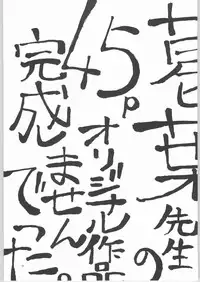 葛葉先生の
45Pオリジナル作品
完成ませんでった。